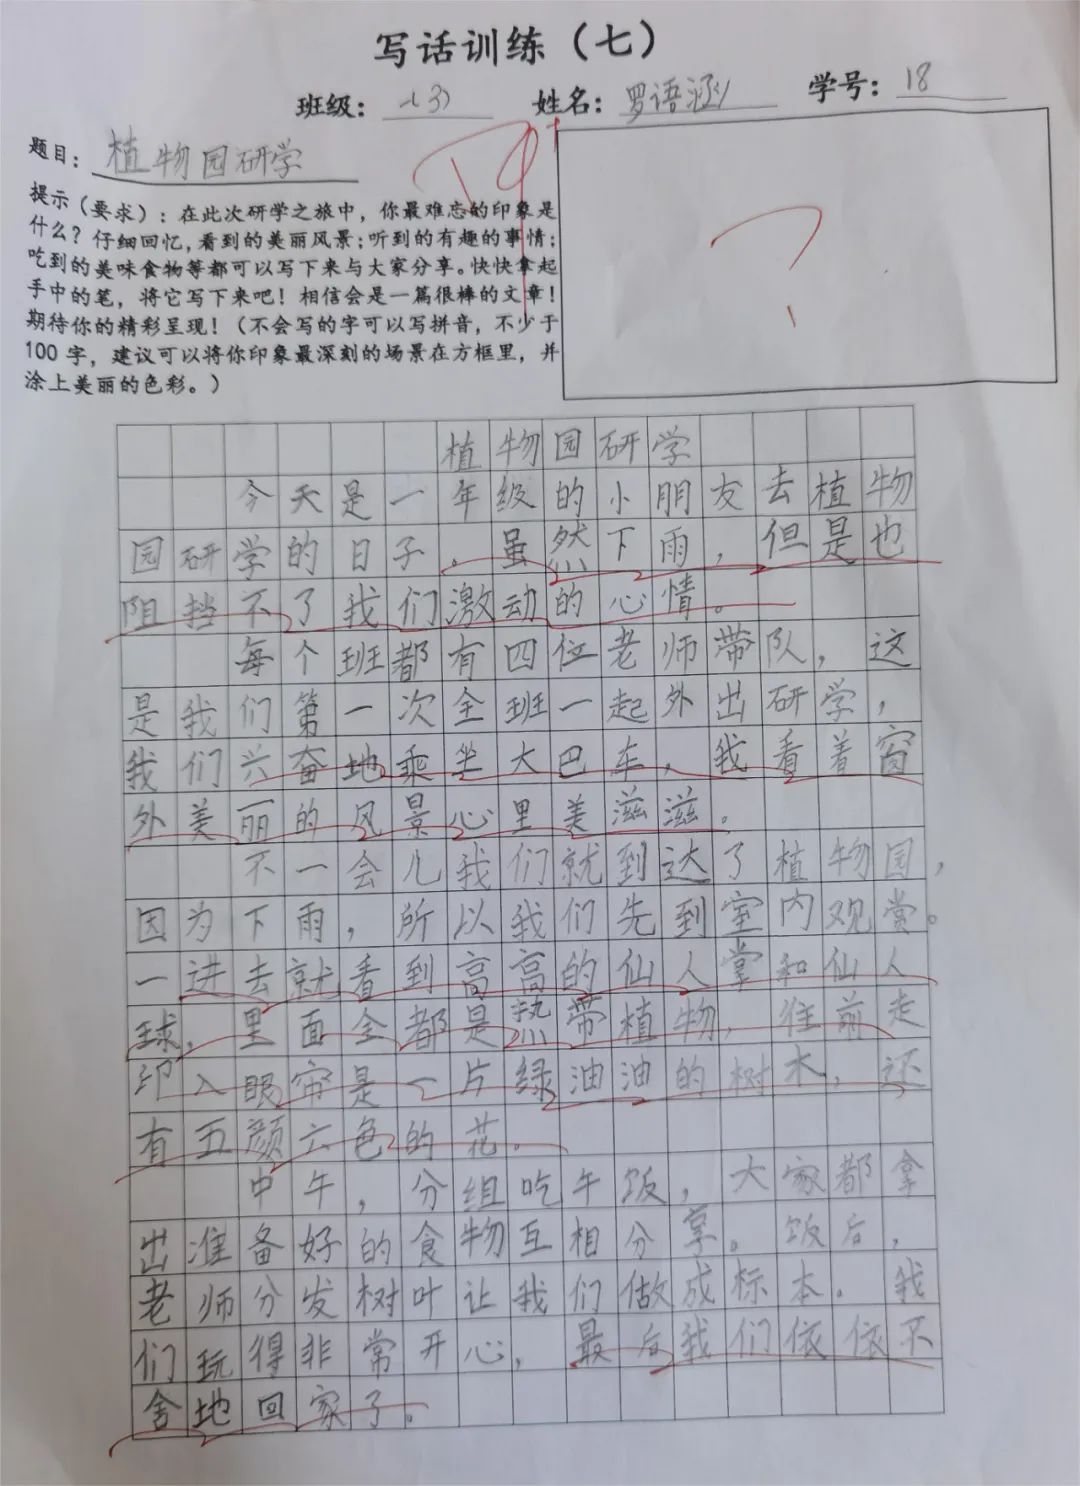 写话训练（七）
班级： 一(3) 姓名：罗语涵 学号：18
题目：植物园研学
提示（要求）：在此次研学之旅中，你最难忘的印象是
什么？仔细回忆，看到的美丽风景；听到的有趣的事情；
吃到的美味食物等都可以写下来与大家分享。快快拿起
手中的笔，将它写下来吧！相信会是一篇很棒的文章！
期待你的精彩呈现！（不会写的字可以写拼音，不少于
100 字，建议可以将你印象最深刻的场景在方框里，并
涂上美丽的色彩。）
？
植物园研学
今天是一年级的小朋友去植物
园研学的日子。虽然下雨，但是也
阻挡不了我们激动的心情。
每个班都有四位老师带队，这
是我们第一次全班一起外出研学，
我们兴奋地乘坐大巴车，我看着窗
外美丽的风景心里美滋滋。
不一会儿我们就到达了植物园，
因为下雨，所以我们先到室内观赏。
一进去就看到高高的仙人掌和仙人
球，里面全都是热带植物，往前走
印入眼帘是一片绿油油的树木，还
有五颜六色的花。
中午，分组吃午饭，大家都拿
出准备好的食物互相分享。饭后，
老师分发树叶让我们做成标本。我
们玩得非常开心，最后我们依依不
舍地回家了。